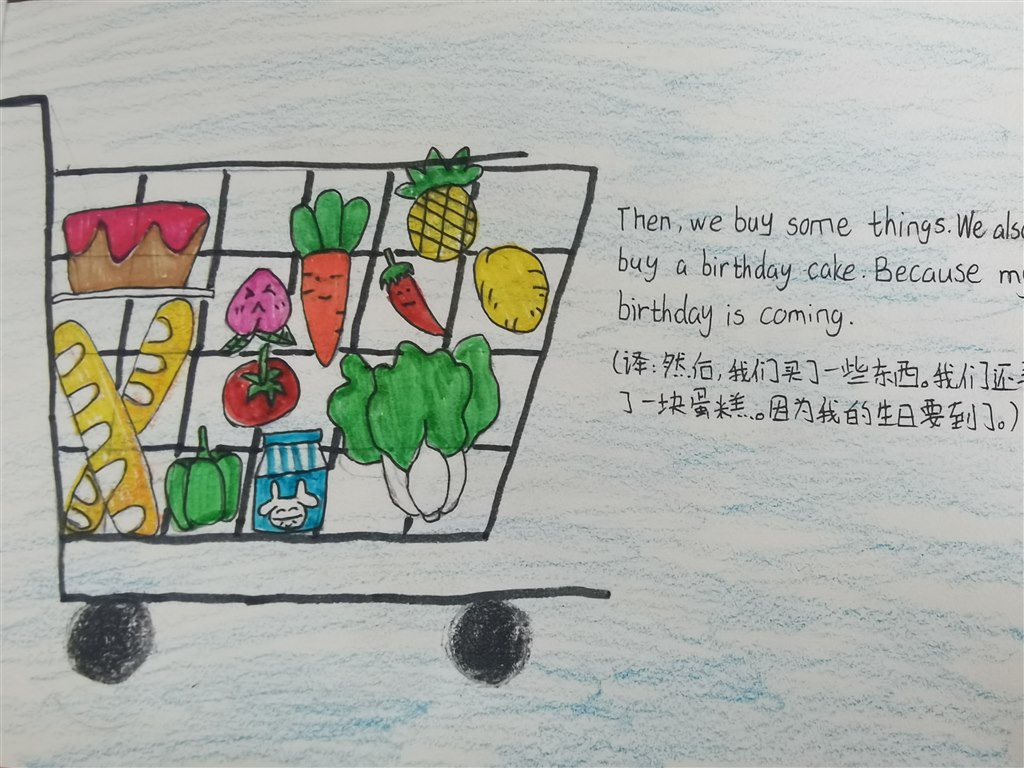 Then, we buy some things. We also
buy a birthday cake. Because my
birthday is coming.
(译:然后,我们买了一些东西。我们还
了一块蛋糕。因为我的生日要到了。)